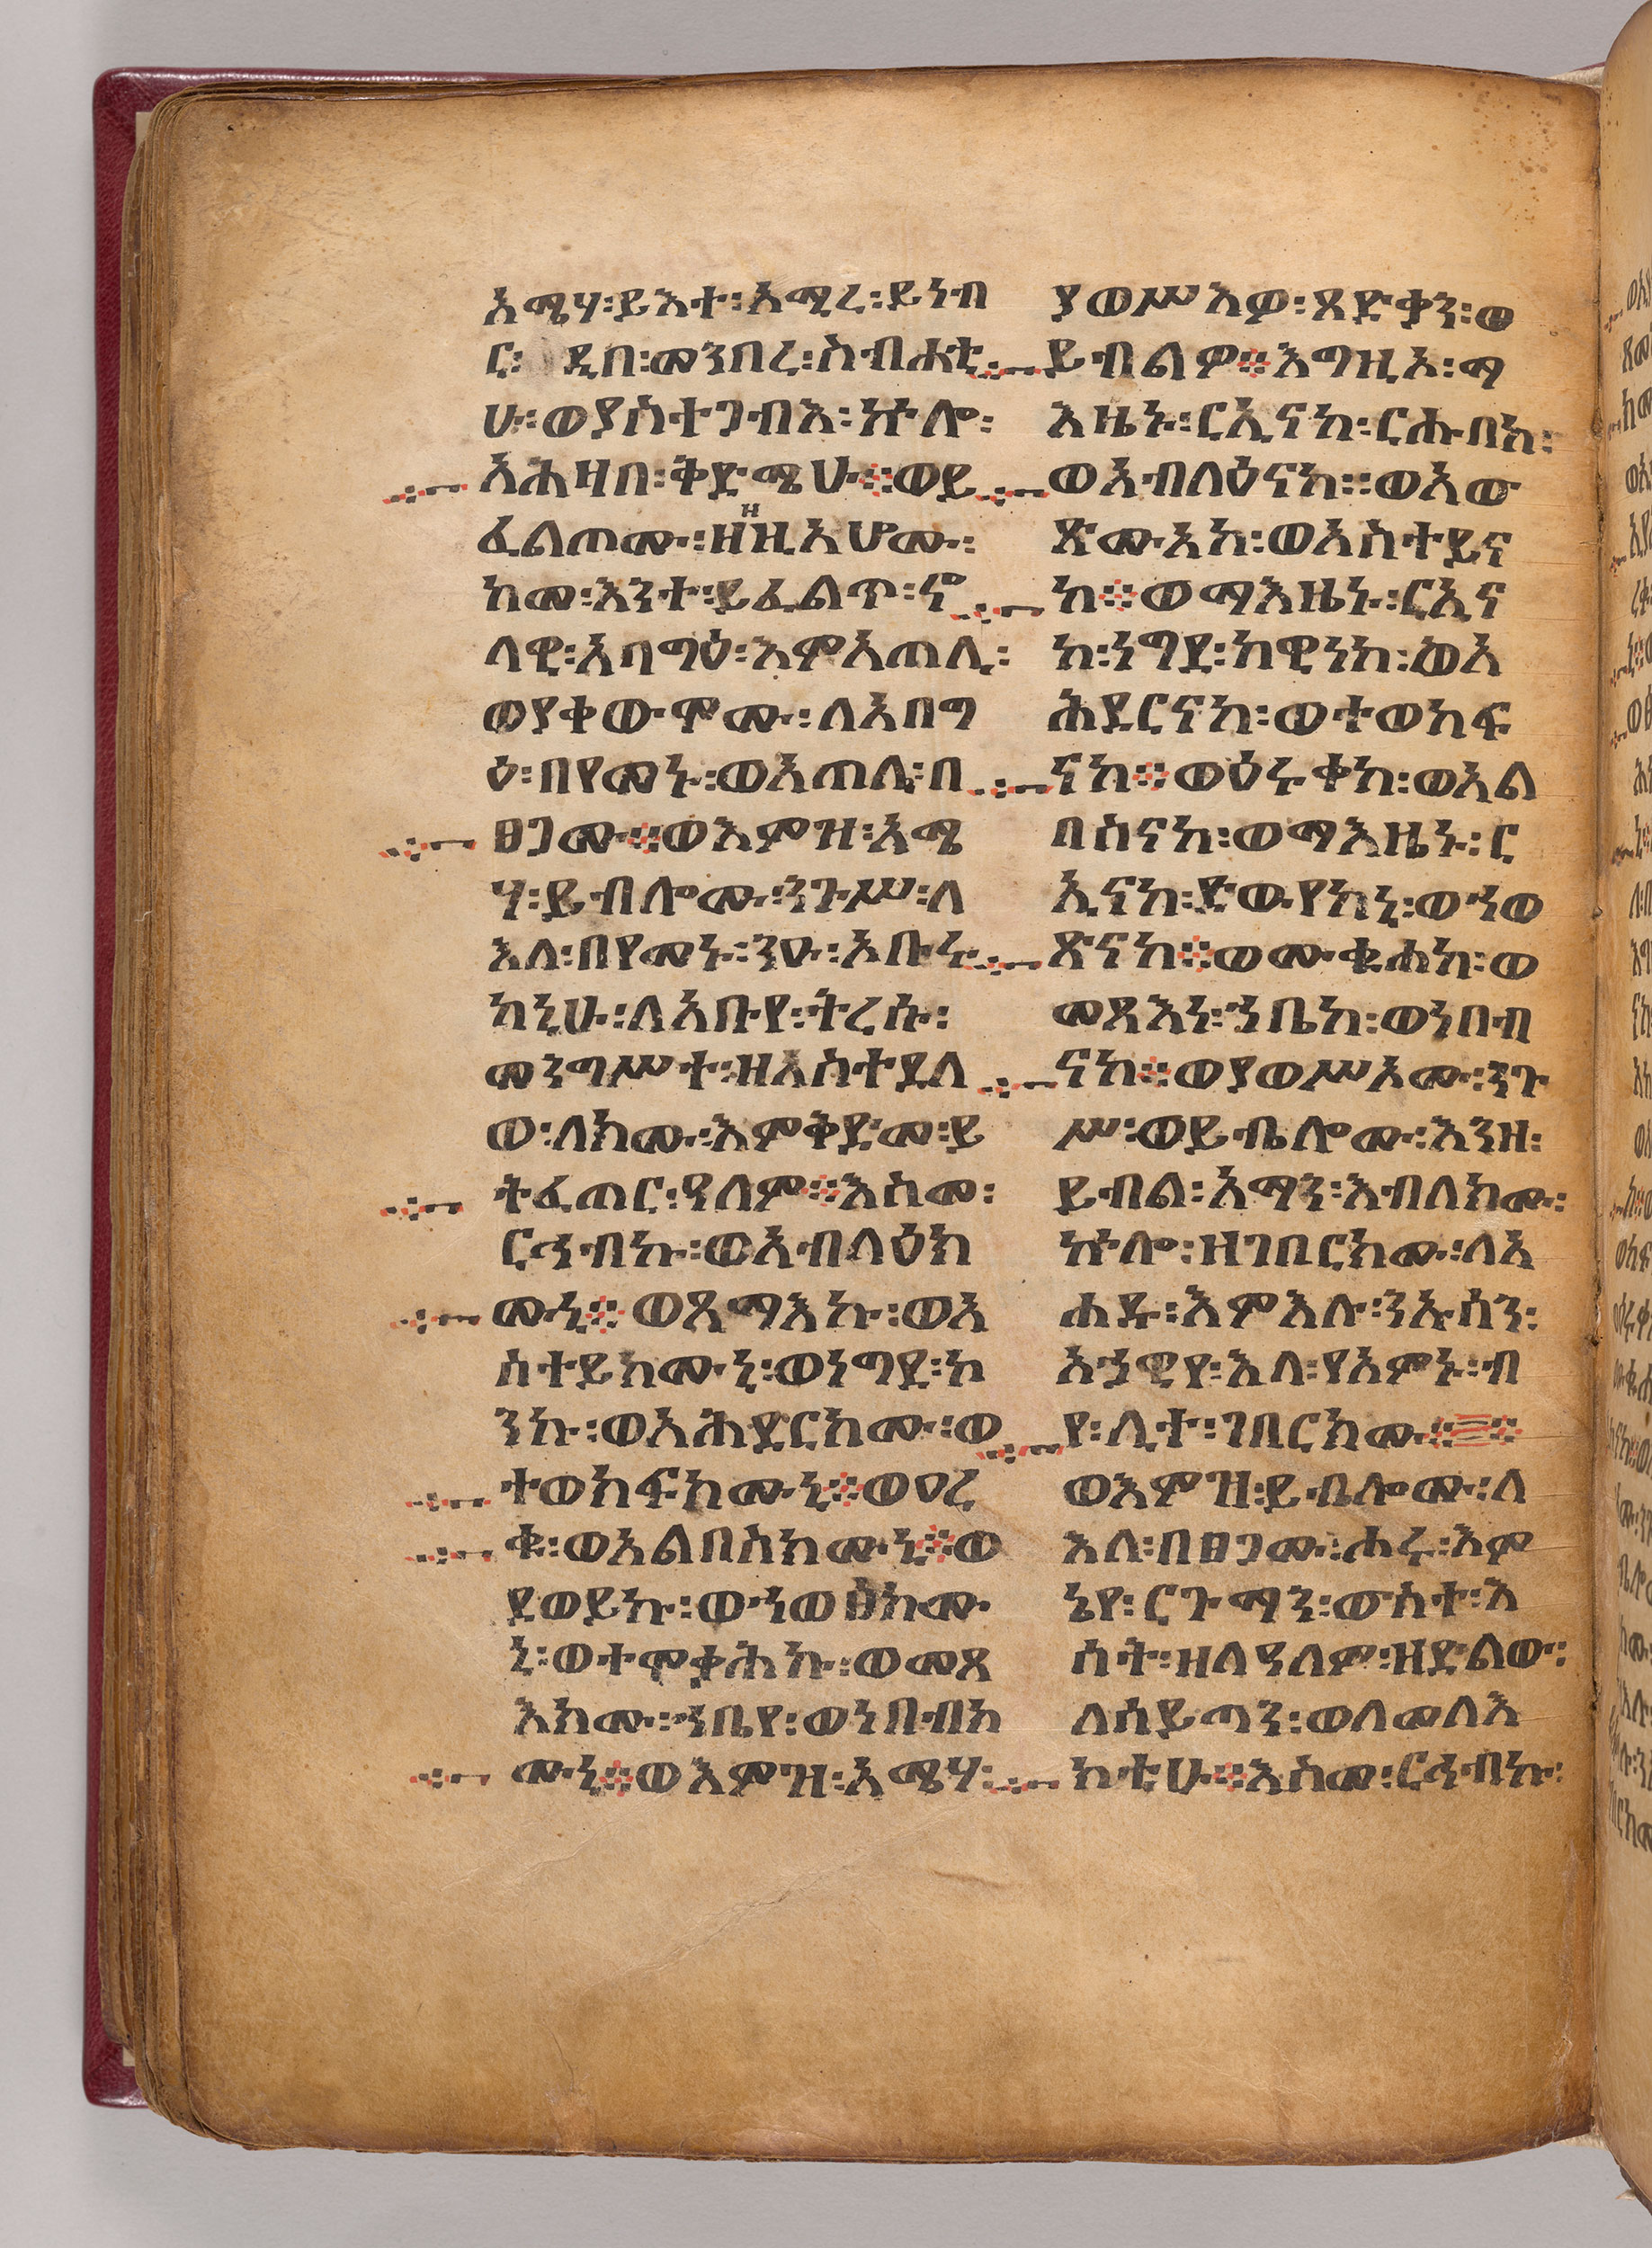 አሜሃ፡ይእተ፡አሚረ፡ይነብ
ር፡ ዲበ፡መንበረ፡ስብሐቲ
ሁ፡ወያስተጋብእ፡ኵሎ፡
አሕዛበ፡ቅድሜሁ፨ወይ
ፈልጦሙ፡ዘዘዚአሆሙ፡
ከመ፡እንተ፡ይፈልጥ፡ኖ
ላዊ፡አባግዕ፡እምአጠሊ፡
ወያቀውሞሙ፡ለአበግ
ዕ፡በየመኑ፡ወአጠሌ፡በ
ፀጋሙ፨ወእምዝ፡አሜ
ሃ፡ይብሎሙ፡ንጉሥ፡ለ
እለ፡በየመኑ፡ንዑ፡እቡሩ
ካኒሁ፡ለአቡየ፡ትረሱ፡
መንግሥተ፡ዘአስተደለ
ወ፡ለክሙ፡እምቅድመ፡ይ
ትፈጠር፡ዓለም፨እስመ፡
ርኅብኩ፡ወአብላዕክ
ሙኒ፨ወጸማእኩ፡ወአ
ስተይክሙኒ፡ወነግደ፡ኮ
ንኩ፡ወአሕደርክሙ፡ወ
ተወከፍክሙኒ፨ወዐረ
ቁ፡ወአልበስክሙኒ፨ወ
ደወይኩ፡ወኀወፀክሙ
ኒ፡ወተሞቃሕኩ፡ወመጻ
እክሙ፡ኀቤየ፡ወነበብክ
ሙኒ፨ወእምዝ፡አሜሃ፡
ያወሥእዎ፡ጻድቃን፡ወ
ይብልዎ፨እግዚአ፡ማ
እዜኑ፡ርኢናከ፡ርሑበከ፡
ወአብላዕናከ፡፡ወአው
ጽሙአከ፡ወአስተይና
ከ፨ወማእዜኑ፡ርኢና
ከ፡ነግደ፡ከዊነከ፡ወአ
ሕደርናከ፡ወተወከፍ
ናከ፨ወዕሩቀከ፡ወአል
በስናከ፡ወማእዜኑ፡ር
ኢናከ፡ድውየከኒ፡ወኀወ
ጽናከ፨ወሙቁሐከ፡ወ
መጻእነ፡ኀቤከ፡ወነበብ
ናከ፨ወያወሥኦሙ፡ንጉ
ሥ፡ወይቤሎሙ፡እንዘ፡
ይብል፡አማን፡እብለክሙ፡
ኵሎ፡ዘገበርክሙ፡ለአ
ሐዱ፡እምእሉ፡ንኡሳን፡
አኃዊየ፡እለ፡የአምኑ፡ብ
የ፡ሊተ፡ገበርክሙ፨፨
ወእምዝ፡ይቤሎሙ፡ለ
እለ፡በፀጋሙ፡ሐሩ፡እም
ኔየ፡ርጉማን፡ውስተ፡እ
ሳት፡ዘለዓለም፡ዘድልው፡
ለሰይጣን፡ወለመለእ
ክቲሁ፨እስመ፡ርኅብኩ፡